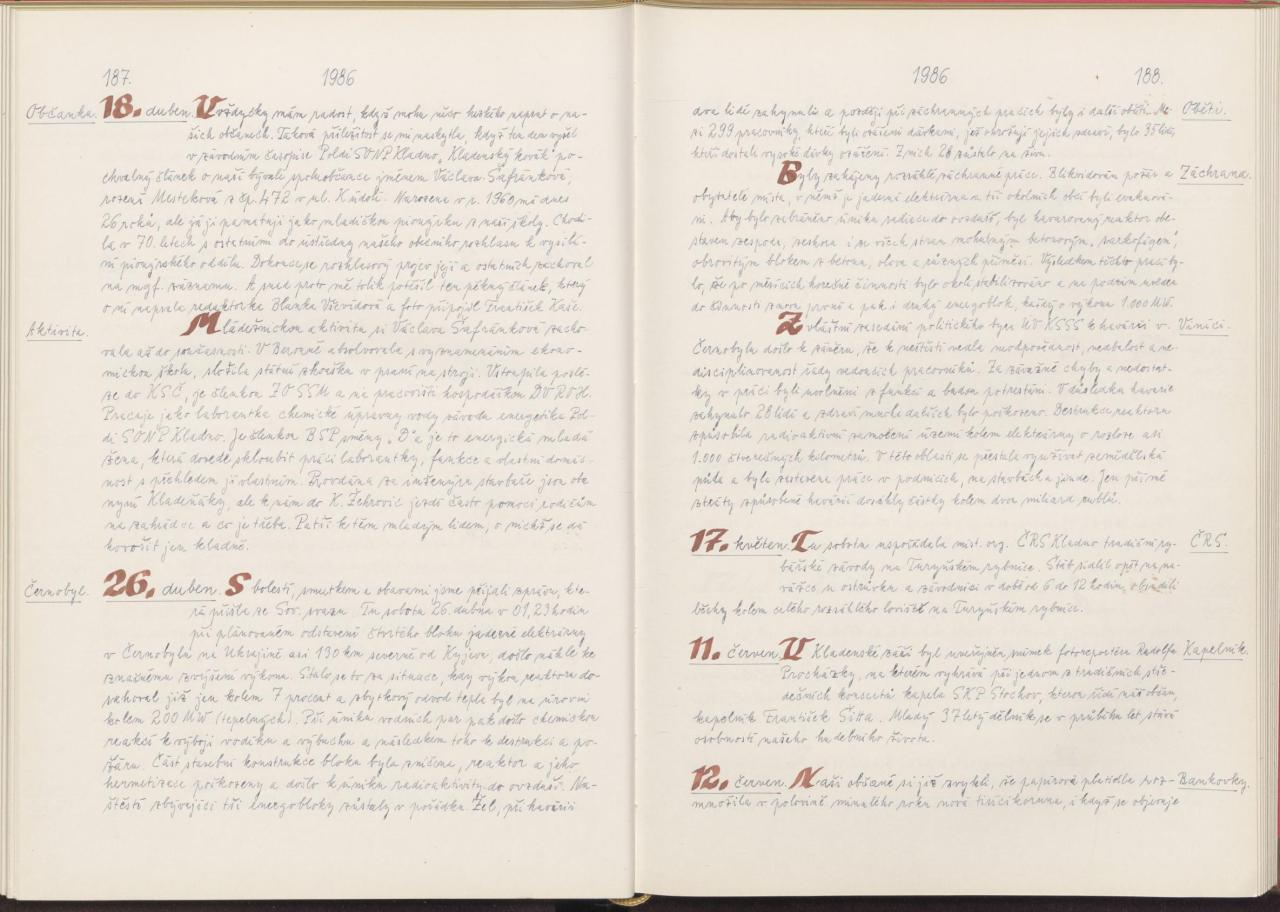 187. 1986
Občanka. 18. duben. Vždycky mám radost, když mohu něco hezkého napsat o na-
šich občanech. Taková příležitost se mi naskytla, když ten den vyšel
v závodním časopise Poldi SONP Kladno „Kladenský kovák" po-
chvalný článek o naší bývalé spoluobčance jménem Václava Šafránková,
rozená Mesteková z čp. 472 v ul. K údolí. Narozena v r. 1960 má dnes
26 roků, ale já ji pamatuji jako mladičkou pionýrku z naší školy. Chodi-
la v 70. letech s ostatními do ústředny našeho obecního rozhlasu k vysílá-
ní pionýrského oddílu. Dokonce se rozhlasový projev její a ostatních zachoval
na mgf. záznamu. A snad proto mě tolik potěšil ten pěkný článek, který
o ní napsala redaktorka Blanka Vševidová a foto připojil František Kaše.
Aktivita. Mládežnickou aktivitu si Václava Šafránková zacho-
vala až do současnosti. V Berouně absolvovala s vyznamenáním ekono-
mickou školu, složila státní zkoušku v psaní na stroji. Vstoupila poslé-
ze do KSČ, je členkou ZO SSM a na pracovišti hospodářkou DV ROH.
Pracuje jako laborantka chemické úpravny vody závodu energetika Pol-
di SONP Kladno. Je členkou BSP směny „D" a je to energická mladá
žena, která dovede skloubit práci laborantky, funkce a vlastní domác-
nost s přehledem jí vlastním. Provdána za inženýra stavbaře jsou oba
nyní Kladeňáky, ale k nám do K. Žehrovic jezdí často pomoci rodičům
na zahrádce a co je třeba. Patří k těm mladým lidem, o nichž se dá
hovořit jen kladně.
Černobyl. 26. duben. S bolestí, smutkem a obavami jsme přijali zprávu, kte-
rá přišla ze Sov. svazu. Tu sobotu 26. dubna v 01,23 hodin
při plánovaném odstavení čtvrtého bloku jaderné elektrárny
v Černobylu na Ukrajině asi 130 km severně od Kyjeva, došlo náhle ke
značnému zvýšení výkonu. Stalo se to za situace, kdy výkon reaktoru do-
sahoval již jen kolem 7 procent a zbytkový odvod tepla byl na úrovni
kolem 200 MW (tepelných). Při úniku vodních par pak došlo chemickou
reakcí k vývoji vodíku a výbuchu a následkem toho k destrukci a po-
žáru. Část stavební konstrukce bloku byla zničena, reaktor a jeho
hermetizace poškozeny a došlo k úniku radioaktivity do ovzduší. Na-
štěstí zbývající tři energobloky zůstaly v pořádku. Žel, při havárii
1986 188.
dva lidé zahynuli a později při záchranných pracích byly i další oběti. Me- Oběti.
zi 299 pracovníky, kteří byli ozářeni dávkami, jež ohrožují jejich zdraví, bylo 35 lidí,
kteří dostali vysoké dávky ozáření. Z nich 28 zůstalo na živu.
Byly zahájeny rozsáhlé záchranné práce. Zlikvidován požár a Záchrana.
obyvatelé města, v němž je jaderná elektrárna a tří okolních obcí byli evakuová-
ni. Aby bylo zabráněno úniku radiace do ovzduší, byl havarovaný reaktor ob-
staven zespoda, zeshora i ze všech stran mohutným betonovým „sarkofágem",
obrovitým blokem z betonu, olova a různých příměsí. Výsledkem těchto prací by-
lo, že po měsících horečné činnosti bylo okolí stabilizováno a na podzim uveden
do činnosti znovu první a pak i druhý energoblok, každý o výkonu 1.000 MW.
Zvláštní zasedání politického byra ÚV KSSS k havárii v Viníci.
Černobylu došlo k závěru, že k neštěstí vedla neodpovědnost, nedbalost a ne-
disciplinovanost řady vedoucích pracovníků. Za závažné chyby a nedostat-
ky v práci byli uvolněni z funkcí a budou potrestáni. V důsledku havarie
zahynulo 28 lidí a zdraví mnoha dalších bylo poškozeno. Destrukce reaktoru
způsobila radioaktivní zamoření území kolem elektrárny o rozloze asi
1.000 čtverečných kilometrů. V této oblasti se přestala využívat zemědělská
půda a byla zastavena práce v podnicích, na stavbách a jinde. Jen přímé
ztráty způsobené havárií dosáhly částky kolem dvou miliard rublů.
17. květen. Tu sobotu uspořádala míst. org. ČRS Kladno tradiční ry- ČRS.
bářské závody na Turyňském rybníce. Štáb sídlil opět na na-
vážce u ostrůvku a závodníci v době od 6 do 12 hodin, obsadili
břehy kolem celého rozsáhlého loviště na Turyňském rybníce.
11. červen. V Kladenské záři byl uveřejněn snímek fotoreportéra Rudolfa Kapelník.
Procházky, na kterém vyhrává při jednom z tradičních stře-
dečních koncertů kapela SKP Stochov, kterou řídí náš občan,
kapelník František Sitta. Mladý 37 letý dělník se v průběhu let, stává
osobností našeho hudebního života.
12. červen. Naši občané si již zvykli, že papírová platidla roz- Bankovky.
množila v polovině minulého roku nová tisícikoruna, i když se objevuje